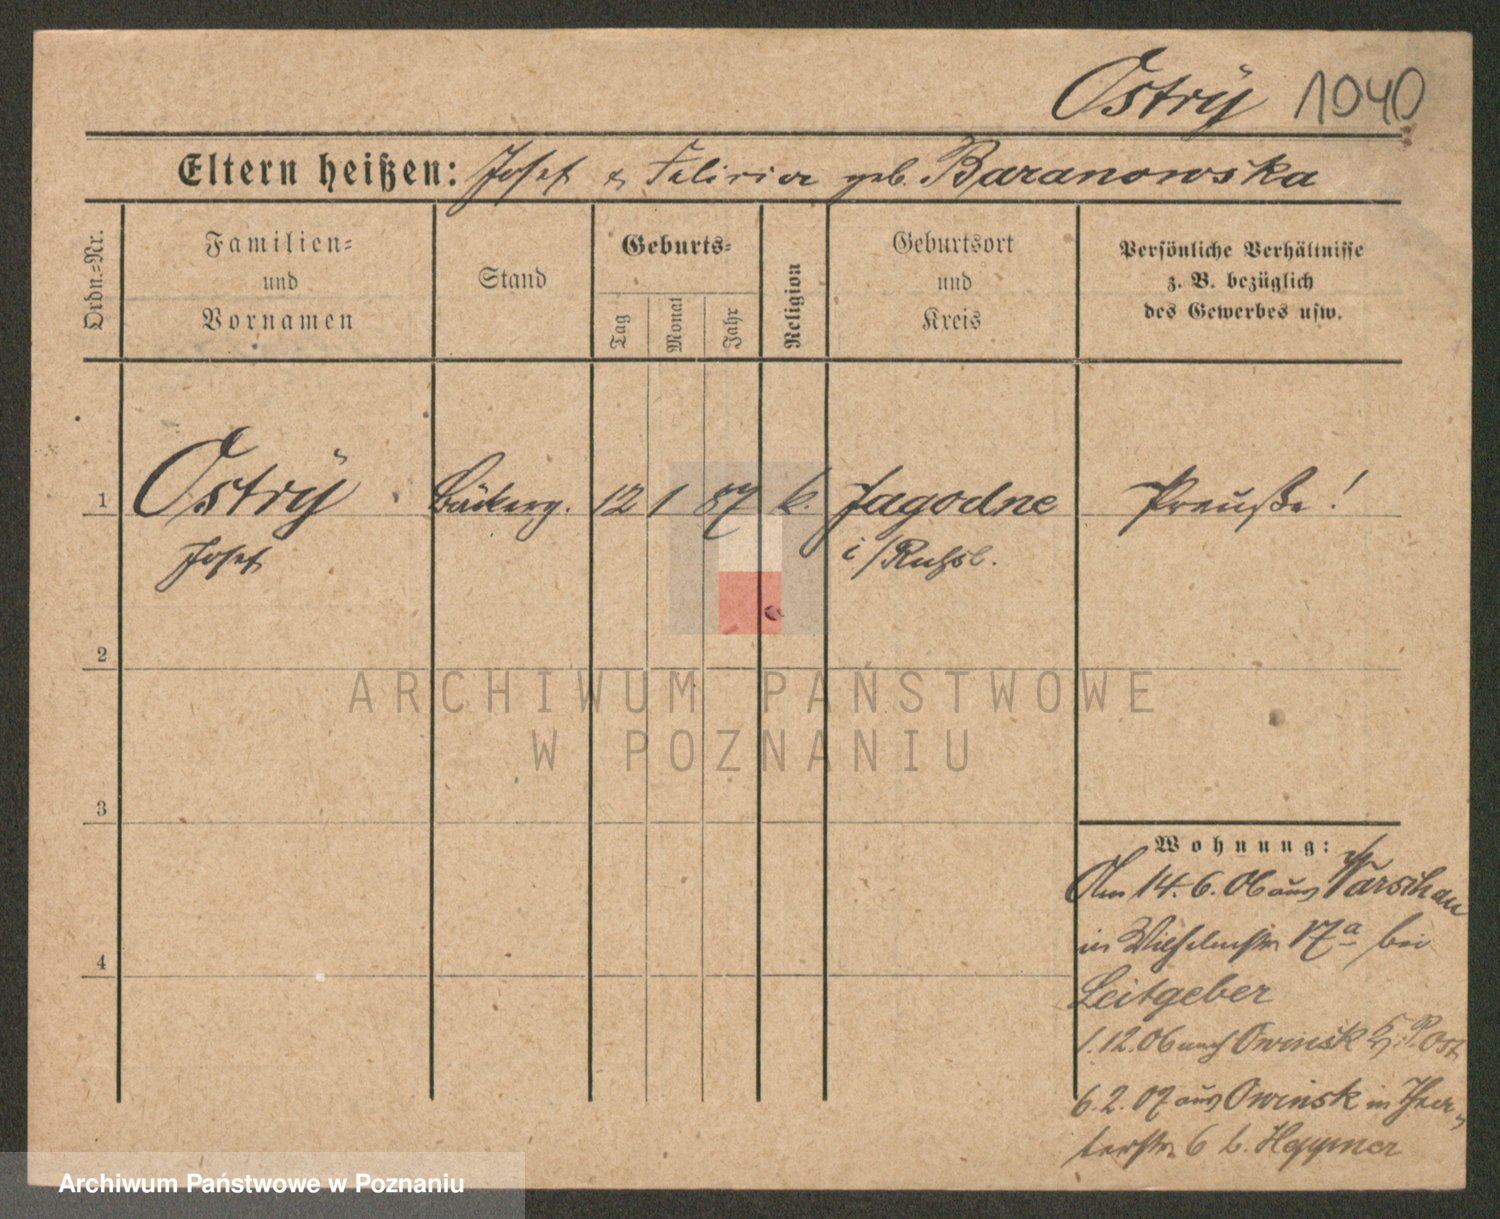 Ostrÿ 1040
Eltern heißen: Josef & Felicia geb. Baranowska
Ordn.=Nr.
Familien=
und
Vornamen
Stand
Geburts=
Tag
Monat
Jahr
Religion
Geburtsort
und
Kreis
Persönliche Verhältnisse
z. B. bezüglich
des Gewerbes usw.
1 Ostrÿ Bäckerg. 12 1 87 k. Jagodne Preuße!
Josef i/Rußl.
2
3
4
Wohnung:
Am 14.6.06 aus Warschau
in Wilhelmstr. 17a bei
Leitgeber
1.12.06 nach Owinsk Kr. P. Ost
6.2.07 aus Owinsk in Thea-
terstr. 6 b.
ARCHIWUM PAŃSTWOWE
W POZNANIU
Archiwum Państwowe w Poznaniu